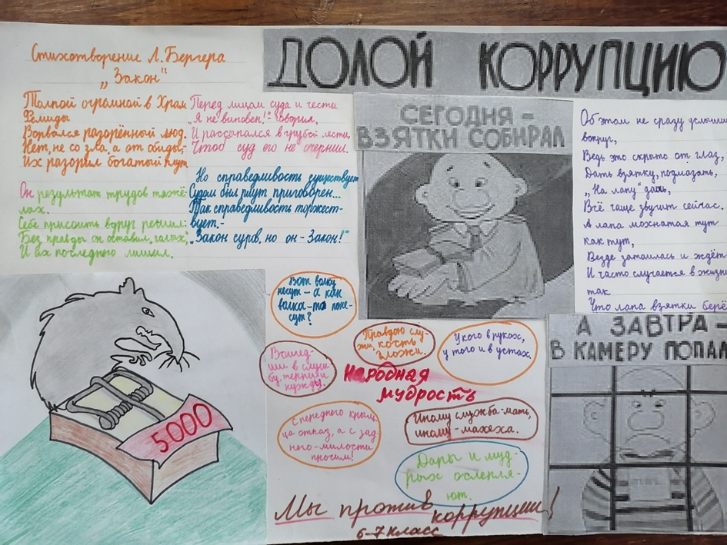 Стихотворение Л. Бергера
„Закон"
Толпой огромной в Храм
Фемиды
Ворвался разорённый люд.
Нет, не со зла, а от обиды,
Их разорил богатый плут.
Он результат трудов тяжё-
лых
Себе присвоить вдруг решил:
Без правды он оставил, голых,
И их последнего лишил.
Перед лицом суда и чести
„Я не виновен!" Говорил,
И рассыпался в грубой лести,
Чтоб суд его не очернил.
Но справедливость существует
Судом был плут приговорен...
Так справедливость торжест-
вует,-
„Закон суров, но он - Закон!"
ДОЛОЙ КОРРУПЦИЮ
СЕГОДНЯ -
ВЗЯТКИ СОБИРАЛ
Об этом не сразу услыши
вокруг,
Ведь это скрыто от глаз,
Дать взятку, подмазать,
„На лапу" дать,
Всё чаще звучит сейчас.
А лапа мохнатая тут
как тут,
Везде затаилась и ждёт
И часто случается в жизни
так
Что лапа взятки берё
5000
Вот волк
несут - а как
волка-то поне-
сут?
Правдою слу-
жи, кость
гложи.
У кого в руках,
у того и в устах.
нужду.
Народная
мудрость
С переднего крыль-
ца отказ, а с зад
него-милости
просим!
Иному служба-мать,
иному-мачеха.
Дары и муд-
рых ослепля-
ют.
Мы против коррупции!
6-7 класс
А ЗАВТРА -
В КАМЕРУ ПОПАЛ